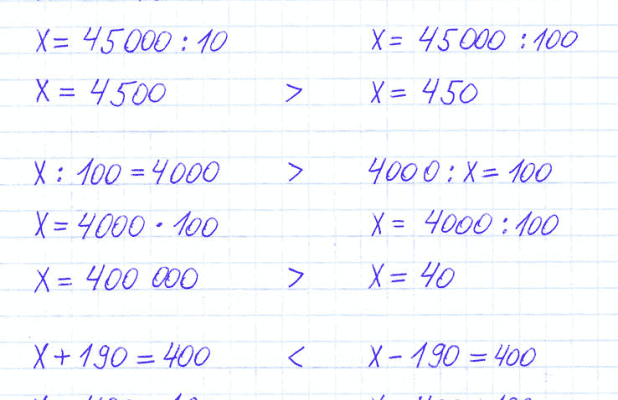 X = 45000 : 10    X = 45000 : 100
X = 4500 > X = 450
X : 100 = 4000 > 4000 : X = 100
X = 4000 · 100    X = 4000 : 100
X = 400 000 > X = 40
X + 190 = 400 < X - 190 = 400